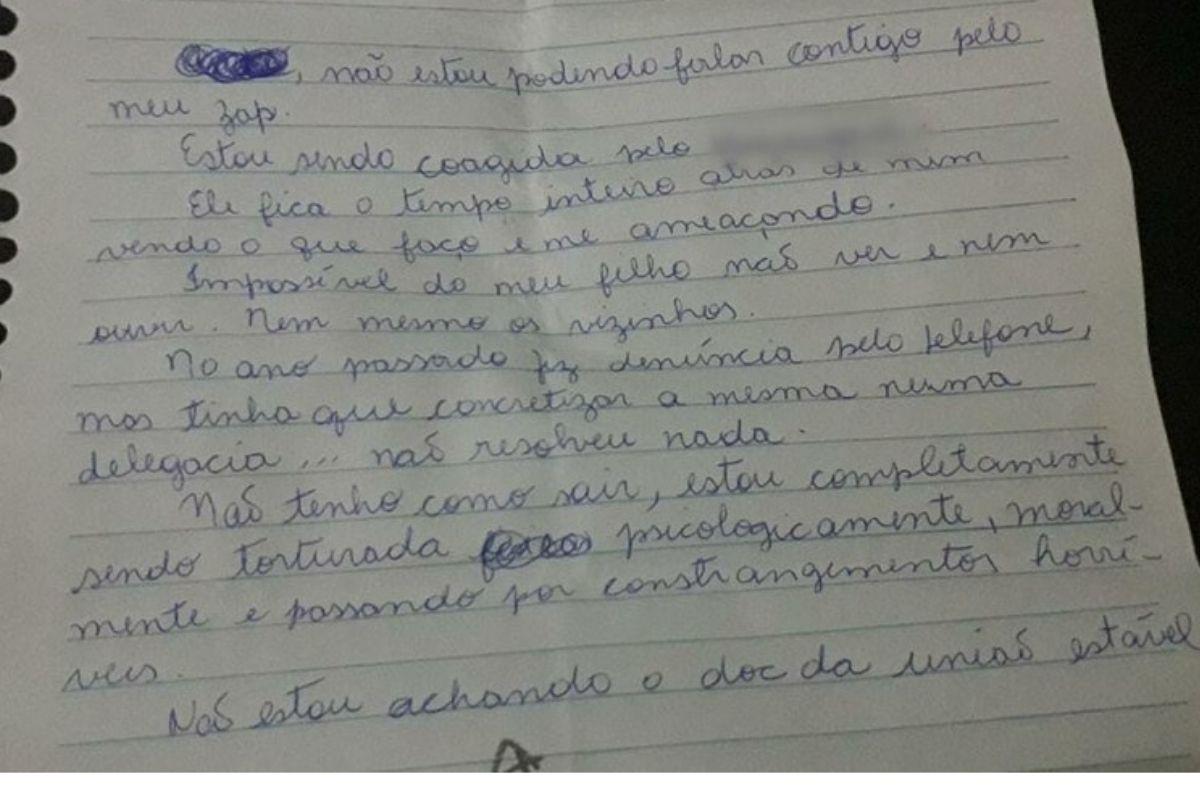 , não estou podendo falar contigo pelo
meu zap.
Estou sendo coagida pelo
Ele fica o tempo inteiro atras de mim
vendo o que faço e me ameaçando.
Impossível do meu filho não ver e nem
ouvir. Nem mesmo os vizinhos.
No ano passado fiz denúncia pelo telefone,
mas tinha que concretizar a mesma numa
delegacia... não resolveu nada.
Não tenho como sair, estou completamente
sendo torturada psicologicamente, moral-
mente e passando por constrangimentos horrí-
veis.
Não estou achando o doc da união estável
A